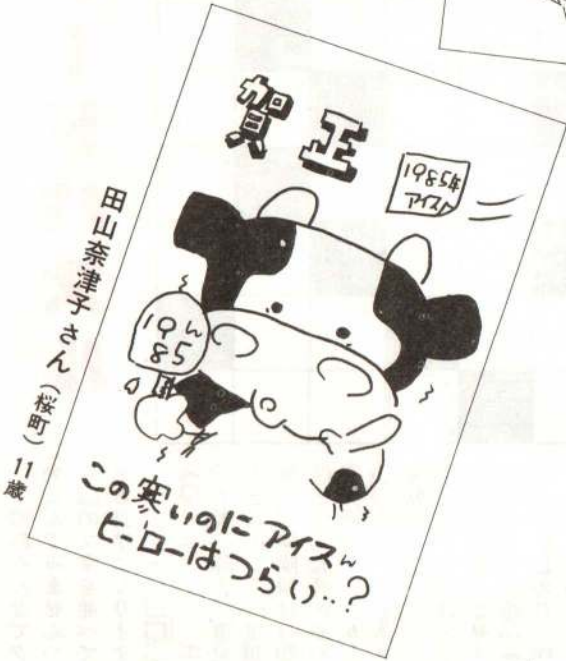 賀正
1985年
アイス
19
85
この寒いのにアイス
ヒーローはつらい‥?
田山奈津子さん(桜町)11歳